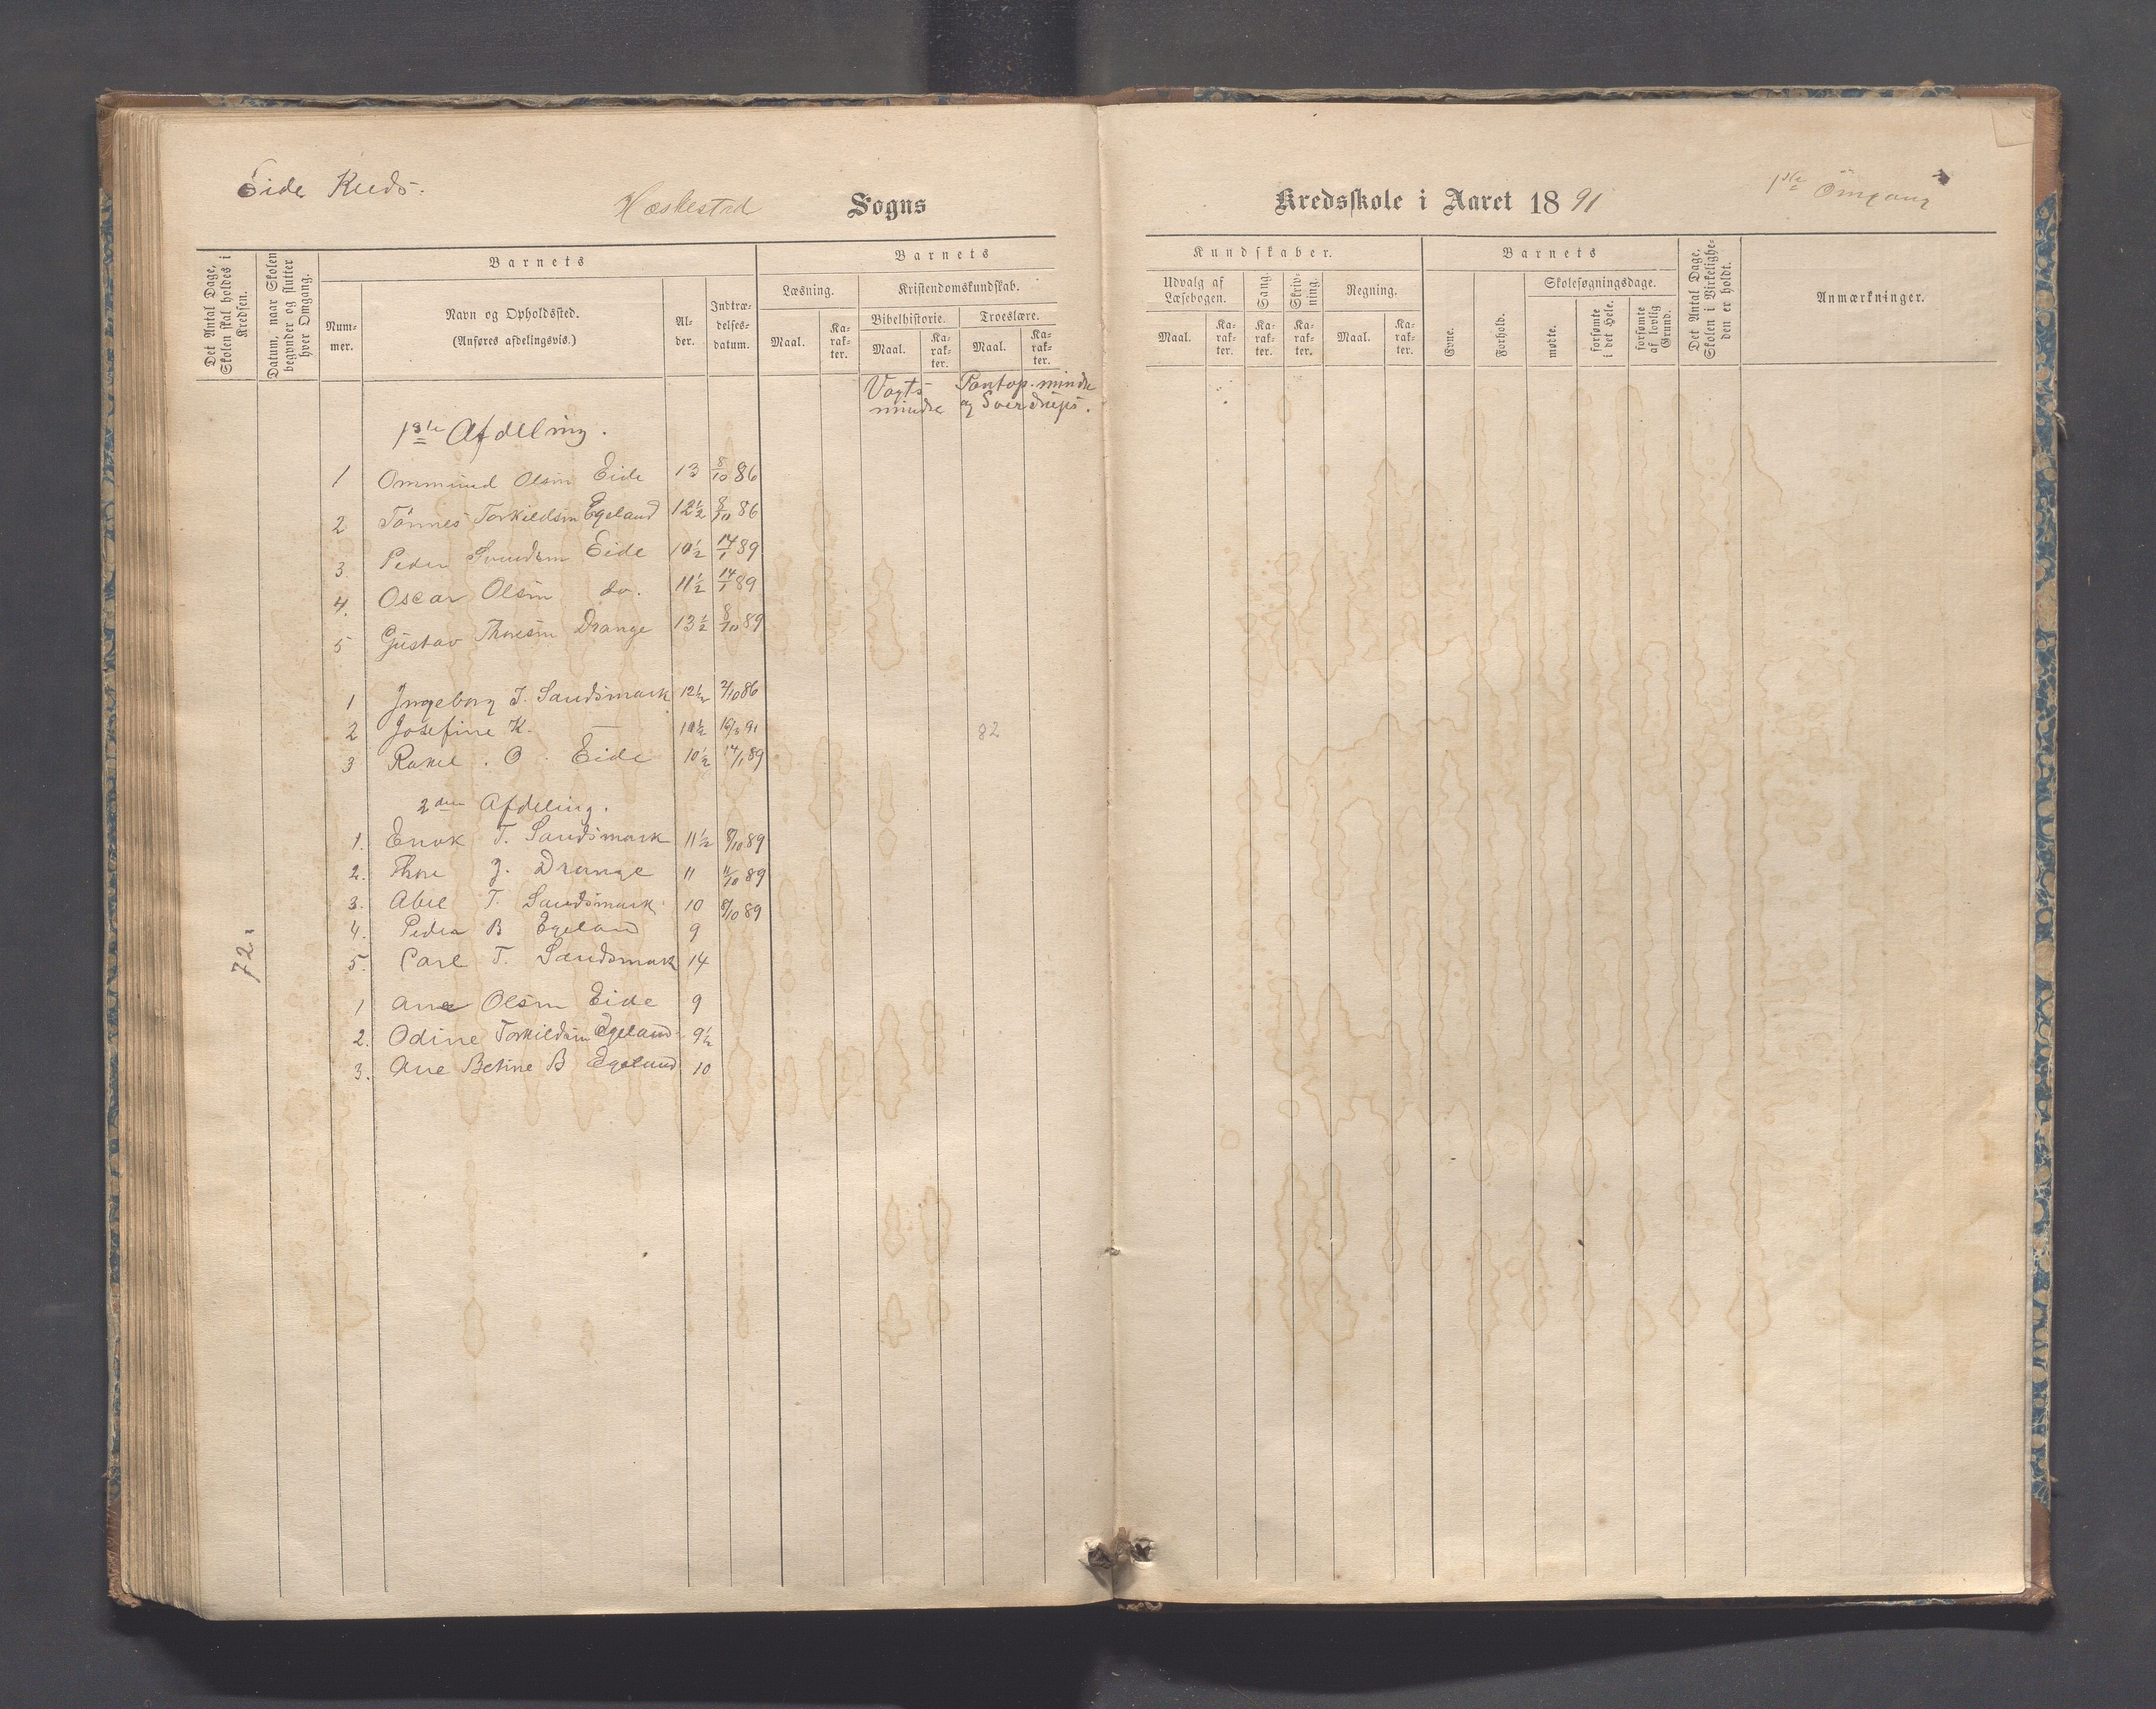 Eide Kreds.
Hæskestad Sogns
Kredsskole i Aaret 1891
1ste Omgang
Det Antal Dage, Skolen skal holdes i Kredsen.
Datum, naar Skolen begynder og slutter hver Omgang.
Barnets
Num-mer.
Navn og Opholdssted.
(Anføres afdelingsvis.)
Al-der.
Indtræ-delses-datum.
Barnets
Læsning.
Maal.
Ka-rak-ter.
Kristendomskundskab.
Bibelhistorie.
Maal.
Ka-rak-ter.
Troeslære.
Maal.
Ka-rak-ter.
Kundskaber.
Udvalg af Læsebogen.
Maal.
Ka-rak-ter.
Sang.
Ka-rak-ter.
Skriv-ning.
Ka-rak-ter.
Regning.
Maal.
Ka-rak-ter.
Barnets
Evne.
Forhold.
Skolesøgningsdage.
mødte.
forsømte i det Hele.
forsømte af lovlig Grund.
Det Antal Dage, Skolen i Virkelighe-den er holdt.
Anmærkninger.
Vogts mindre
Pontop. mindre og Sverdrups.
1ste Afdeling.
1 Ommund Olsen Eide 13 8/10 86
2 Tønnes Torkildsen Egeland 12½ 8/10 86
3. Peder Svendsen Eide 10½ 14/1 89
4. Oscar Olsen do. 11½ 14/1 89
5 Gustav Thoresen Drange 13½ 8/10 89
1 Ingeborg T. Sandsmark 12½ 2/10 86
2 Josefine K. — 10½ 16/3 91
82
3 Rakel . O . Eide 10½ 14/1 89
2den Afdeling.
1. Enok T. Sandsmark 11½ 8/10 89
2. Thore J. Drange 11 11/10 89
3. Abel T. Sandsmark 10 8/10 89
4. Peder B Egeland 9
72
5. Carl T. Sandsmark 14
1 Ane Olsen Eide 9
2. Odine Torkildsen Egeland 9½
3. Ane Betine B Egeland 10